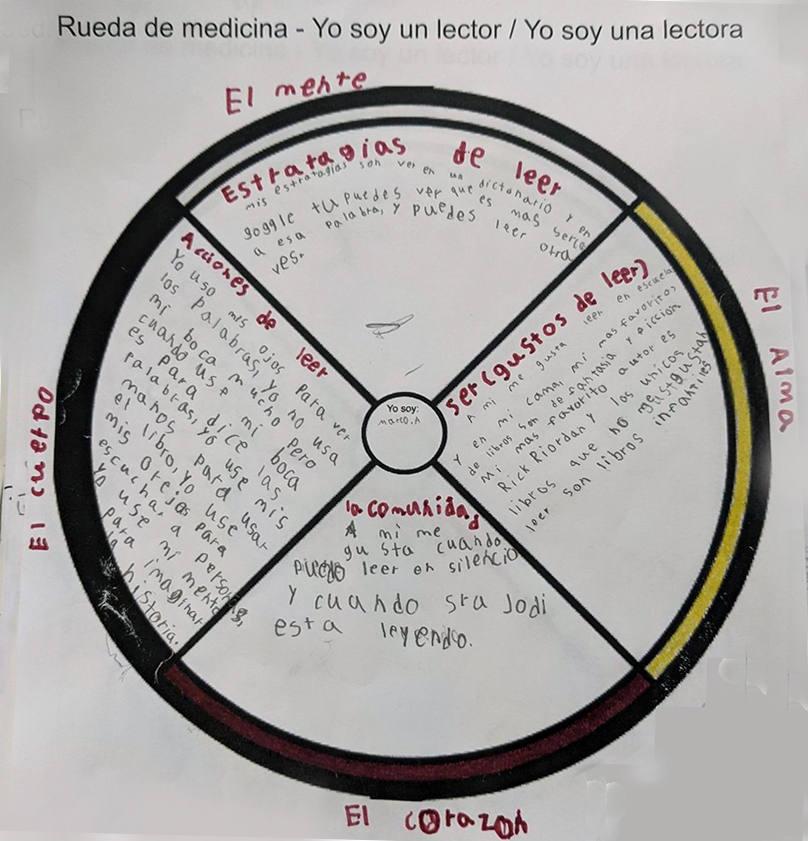 Rueda de medicina - Yo soy un lector / Yo soy una lectora
El mente
Estratagias de leer
mis estratagias son ver en un dictonario y en
goggle tu puedes ver que es mas serca
a esa palabra, y puedes leer otra
ves.
ser (gustos de leer)
A mi me gusta leer en escuela
y en mi cama, mi mas favoritos
de libros son de fantasia y ficcion
mi mas favorito autor es
Rick Riordan y los unicos
libros que no me gustan
leer son libros infantiles
El Alma
Yo soy:
marco.A
Acciones de leer
Yo uso mis ojos para ver
los palabras, yo no usa
mi boca mucho pero
cuando use mi boca
es para dice las
palabras, yo use mis
manos para usar
el libro, yo use
mis orejas para
escuchar a personas,
Yo use mi mente
para imaginar
la historia.
El cuerpo
la comunidad
A mi me
gusta cuando
puedo leer en silencio
Y cuando sra Jodi
esta leyendo.
El corazon